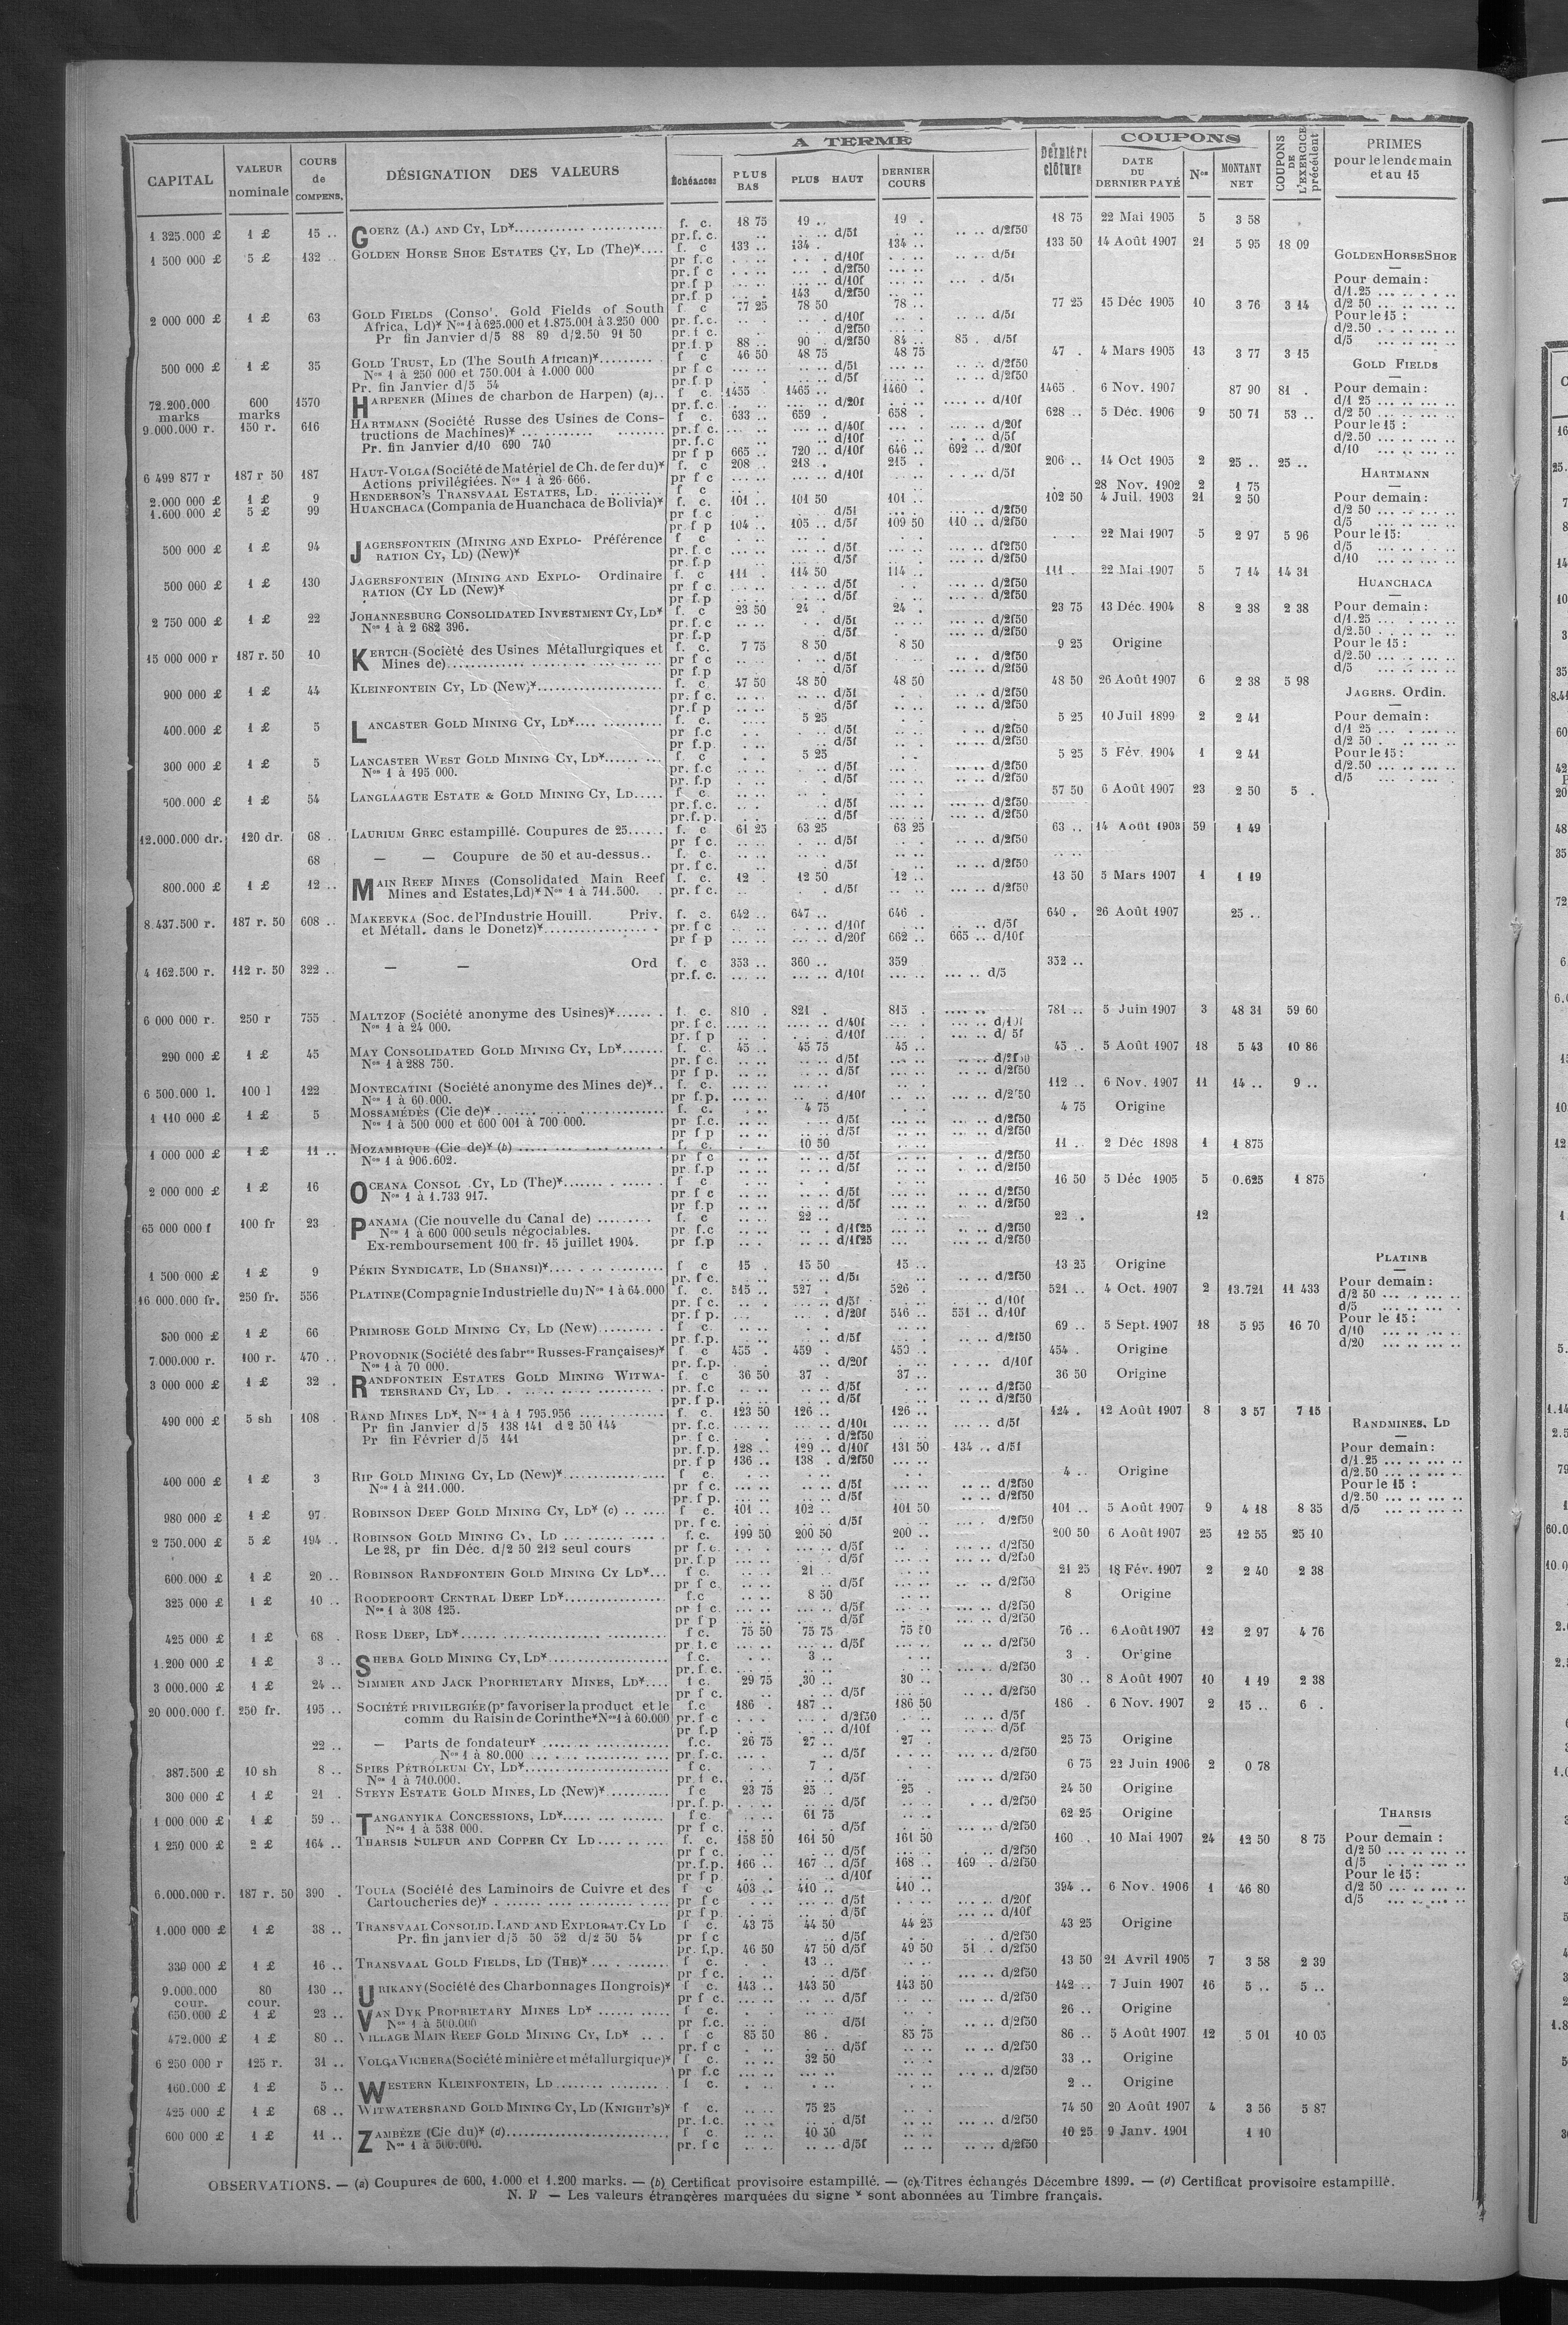 A TERME
COUPONS
CAPITAL | VALEUR nominale | COURS de COMPENS. | DÉSIGNATION DES VALEURS | Échéances | PLUS BAS | PLUS HAUT | DERNIER COURS | Dernière clôture | DATE DU DERNIER PAYÉ | Nos | MONTANT NET | COUPONS DE L'EXERCICE précédent | PRIMES pour le lendemain et au 15
1 325.000 £ | 1 £ | 15 .. | GOERZ (A.) AND CY, LD* | f. c. | 18 75 | 19 .. | 19 . | 18 75 | 22 Mai 1905 | 5 | 3 58
pr. f. c. | d/5f | d/2f50
1 500 000 £ | 5 £ | 132 .. | GOLDEN HORSE SHOE ESTATES CY, LD (The)* | f. c | 133 .. | 134 . | 134 .. | 133 50 | 14 Août 1907 | 21 | 5 95 | 18 09
pr f.c | d/10f | d/5f
pr f c | d/2f50
pr.f p | d/10f | d/5f
pr.f p | 143 d/2f50
2 000 000 £ | 1 £ | 63 | GOLD FIELDS (Conso'. Gold Fields of South | f c | 77 25 | 78 50 | 78 .. | 77 25 | 15 Déc 1905 | 10 | 3 76 | 3 14
Africa, Ld)* Nos 1 à 625.000 et 1.875.001 à 3.250 000 | pr. f. c. | d/10f | d/5f
Pr fin Janvier d/5 88 89 d/2.50 91 50 | pr. f c. | d/2f50
pr.f.p | 88 .. | 90 . d/2f50 | 84 .. | 85 . d/5f
500 000 £ | 1 £ | 35 | GOLD TRUST, LD (The South African)* | f c | 46 50 | 48 75 | 48 75 | 47 . | 4 Mars 1905 | 13 | 3 77 | 3 15
Nos 1 à 250 000 et 750.001 à 1.000 000 | pr f c | d/5f | d/2f50
Pr. fin Janvier d/5 54 | pr.f.p | d/5f | d/2f50
72.200.000 marks | 600 marks | 1570 | HARPENER (Mines de charbon de Harpen) (a) | f c. | 1455 | 1465 .. | 1460 . | 1465 . | 6 Nov. 1907 | 87 90 | 81 .
pr. f. c. | d/20f | d/10f
9.000.000 r. | 150 r. | 616 | HARTMANN (Société Russe des Usines de Cons- | f c. | 633 .. | 659 . | 658 . | 628 .. | 5 Déc. 1906 | 9 | 50 71 | 53 ..
tructions de Machines)* | pr. f c. | d/40f | d/20f
Pr. fin Janvier d/10 690 740 | pr. f.c | d/10f | d/5f
pr f p | 665 .. | 720 .. d/10f | 646 .. | 692 .. d/20f
6 499 877 r | 187 r 50 | 187 | HAUT-VOLGA (Société de Matériel de Ch. de fer du)* | f. c | 208 . | 218 . | 215 . | 206 .. | 14 Oct 1905 | 2 | 25 .. | 25 ..
Actions privilégiées. Nos 1 à 26 666. | pr f c | d/10f | d/5f
2.000 000 £ | 1 £ | 9 | HENDERSON'S TRANSVAAL ESTATES, LD. | f c | 28 Nov. 1902 | 2 | 1 75
1.600 000 £ | 5 £ | 99 | HUANCHACA (Compania de Huanchaca de Bolivia)* | f. c. | 101 .. | 101 50 | 101 .. | 102 50 | 4 Juil. 1903 | 21 | 2 50
pr f c | d/5f | d/2f50
pr f p | 104 .. | 105 .. d/5f | 109 50 | 110 .. d/2f50
500 000 £ | 1 £ | 94 | JAGERSFONTEIN (MINING AND EXPLO- Préférence | f c | 22 Mai 1907 | 5 | 2 97 | 5 96
RATION CY, LD) (New)* | pr. f. c | d/5f | d/2f50
pr. f.p | d/5f | d/2f50
500 000 £ | 1 £ | 130 | JAGERSFONTEIN (MINING AND EXPLO- Ordinaire | f. c | 111 . | 114 50 | 114 .. | 111 . | 22 Mai 1907 | 5 | 7 14 | 14 31
RATION (CY LD (New)* | pr f c | d/5f | d/2f50
pr f.p | d/5f | d/2f50
2 750 000 £ | 1 £ | 22 | JOHANNESBURG CONSOLIDATED INVESTMENT CY, LD* | f. c | 23 50 | 24 . | 24 . | 23 75 | 13 Déc. 1904 | 8 | 2 38 | 2 38
Nos 1 à 2 682 396. | pr. f.c | d/5f | d/2f50
pr. f.p | d/5f | d/2f50
15 000 000 r | 187 r. 50 | 10 | KERTCH (Société des Usines Métallurgiques et | f. c. | 7 75 | 8 50 | 8 50 | 9 25 | Origine
Mines de) | pr f c | d/5f | d/2f50
pr f.p | d/5f | d/2f50
900 000 £ | 1 £ | 44 | KLEINFONTEIN CY, LD (New)* | f. c. | 47 50 | 48 50 | 48 50 | 48 50 | 26 Août 1907 | 6 | 2 38 | 5 98
pr. f c. | d/5f | d/2f50
pr. f p | d/5f | d/2f50
400.000 £ | 1 £ | 5 | LANCASTER GOLD MINING CY, LD* | f. c. | 5 25 | 5 25 | 10 Juil 1899 | 2 | 2 41
pr f.c | d/5f | d/2f50
pr f.p. | d/5f | d/2f50
300 000 £ | 1 £ | 5 | LANCASTER WEST GOLD MINING CY, LD* | f. c | 5 25 | 5 25 | 5 Fév. 1904 | 1 | 2 41
Nos 1 à 195 000. | pr. f.c | d/5f | d/2f50
pr. f.p | d/5f | d/2f50
500.000 £ | 1 £ | 54 | LANGLAAGTE ESTATE & GOLD MINING CY, LD | f c. | 57 50 | 6 Août 1907 | 23 | 2 50 | 5 .
pr. f. c. | d/5f | d/2f50
pr.f.p. | d/5f | d/2f50
12.000.000 dr. | 120 dr. | 68 .. | LAURIUM GREC estampillé. Coupures de 25 | f. c | 61 25 | 63 25 | 63 25 | 63 .. | 14 Août 1903 | 59 | 1 49
pr f c. | d/5f | d/2f50
68 | — — Coupure de 50 et au-dessus.. | f. c.
pr. f c. | d/5f | d/2f50
800.000 £ | 1 £ | 12 .. | MAIN REEF MINES (Consolidated Main Reef | f. c. | 12 . | 12 50 | 12 .. | 13 50 | 5 Mars 1907 | 1 | 1 19
Mines and Estates, Ld)* Nos 1 à 711.500. | pr. f c. | d/5f | d/2f50
8.437.500 r. | 187 r. 50 | 608 .. | MAKEEVKA (Soc. de l'Industrie Houill. Priv. | f. c. | 642 .. | 647 .. | 646 . | 640 . | 26 Août 1907 | 25 ..
et Métall. dans le Donetz)* | pr. f c | d/10f | d/5f
pr f p | d/20f | 662 .. | 665 .. d/10f
4 162.500 r. | 112 r. 50 | 322 .. | — — Ord | f. c | 353 .. | 360 .. | 359 | 352 ..
pr. f. c. | d/10f | d/5
6 000 000 r. | 250 r | 755 . | MALTZOF (Société anonyme des Usines)* | f. c. | 810 . | 821 . | 815 . | 781 .. | 5 Juin 1907 | 3 | 48 31 | 59 60
Nos 1 à 24 000. | pr. f c. | d/40f | d/10f
pr. f p | d/10f | d/ 5f
290 000 £ | 1 £ | 45 | MAY CONSOLIDATED GOLD MINING CY, LD* | f. c. | 45 .. | 45 75 | 45 .. | 45 .. | 5 Août 1907 | 18 | 5 43 | 10 86
Nos 1 à 288 750. | pr. f c. | d/5f | d/2f50
pr f p. | d/5f | d/2f50
6 500.000 l. | 100 l | 122 | MONTECATINI (Société anonyme des Mines de)* | f. c. | 112 .. | 6 Nov. 1907 | 11 | 14 .. | 9 ..
Nos 1 à 60.000. | pr f.p. | d/10f | d/2f50
1 110 000 £ | 1 £ | 5 | MOSSAMÉDÈS (Cie de)* | f. c. | 4 75 | 4 75 | Origine
Nos 1 à 500 000 et 600 001 à 700 000. | pr f.c. | d/5f | d/2f50
pr f p | d/5f | d/2f50
1 000 000 £ | 1 £ | 11 .. | MOZAMBIQUE (Cie de)* (b) | f. c. | 10 50 | 11 .. | 2 Déc 1898 | 1 | 1 875
Nos 1 à 906.602. | pr f c | d/5f | d/2f50
pr. f.p | d/5f | d/2f50
2 000 000 £ | 1 £ | 16 | OCEANA CONSOL. CY, LD (The)* | f. c | 16 50 | 5 Déc 1905 | 5 | 0.625 | 1 875
Nos 1 à 1.733 917. | pr f c | d/5f | d/2f50
pr f.p | d/5f | d/2f50
65 000 000 f | 100 fr | 23 . | PANAMA (Cie nouvelle du Canal de) | f. c | 22 .. | 22 . | 12
Nos 1 à 600 000 seuls négociables. | pr f.c | d/1f25 | d/2f50
Ex-remboursement 100 fr. 15 juillet 1904. | pr f.p | d/1f25 | d/2f50
1 500 000 £ | 1 £ | 9 | PÉKIN SYNDICATE, LD (SHANSI)* | f c | 15 . | 15 50 | 15 .. | 13 25 | Origine
pr. f c. | d/5f | d/2f50
16 000.000 fr. | 250 fr. | 556 | PLATINE (Compagnie Industrielle du) Nos 1 à 64.000 | f. c. | 515 .. | 527 . | 526 . | 521 .. | 4 Oct. 1907 | 2 | 13.721 | 11 433
pr. f c. | d/5f | d/10f
pr. f p. | d/20f | 546 .. | 551 .. d/10f
300 000 £ | 1 £ | 66 | PRIMROSE GOLD MINING CY, LD (New) | f c. | 69 .. | 5 Sept. 1907 | 18 | 5 95 | 16 70
pr. f.p. | d/5f | d/2f50
7.000.000 r. | 100 r. | 470 .. | PROVODNIK (Société des fabres Russes-Françaises)* | f c | 455 . | 459 . | 459 . | 454 . | Origine
Nos 1 à 70 000. | pr. f.p. | d/20f | d/10f
3 000 000 £ | 1 £ | 32 . | RANDFONTEIN ESTATES GOLD MINING WITWA- | f. c | 36 50 | 37 . | 37 .. | 36 50 | Origine
TERSRAND CY, LD | pr. f.c | d/5f | d/2f50
pr f p. | d/5f | d/2f50
490 000 £ | 5 sh | 108 . | RAND MINES LD*, Nos 1 à 1 795.956 | f. c. | 123 50 | 126 .. | 126 .. | 124 . | 12 Août 1907 | 8 | 3 57 | 7 15
Pr fin Janvier d/5 138 141 d 2 50 144 | pr. f.c. | d/10f | d/5f
Pr fin Février d/5 141 | pr. f c. | d/2f50
pr. f.p. | 128 .. | 129 .. d/10f | 131 50 | 134 .. d/5f
pr. f p | 136 .. | 138 . d/2f50
400 000 £ | 1 £ | 3 | RIP GOLD MINING CY, LD (New)* | f c. | 4 .. | Origine
Nos 1 à 211.000. | pr f c. | d/5f | d/2f50
pr. f p. | d/5f | d/2f50
980 000 £ | 1 £ | 97 | ROBINSON DEEP GOLD MINING CY, LD* (c) | f c. | 101 .. | 102 .. | 101 50 | 101 .. | 5 Août 1907 | 9 | 4 18 | 8 35
pr. f c. | d/5f | d/2f50
2 750.000 £ | 5 £ | 194 .. | ROBINSON GOLD MINING CY, LD | f. c. | 199 50 | 200 50 | 200 .. | 200 50 | 6 Août 1907 | 25 | 12 55 | 25 10
Le 28, pr fin Déc. d/2 50 212 seul cours | pr f. c. | d/5f | d/2f50
pr. f.p | d/5f | d/2f50
600.000 £ | 1 £ | 20 .. | ROBINSON RANDFONTEIN GOLD MINING CY LD* | f c. | 21 .. | 21 25 | 18 Fév. 1907 | 2 | 2 40 | 2 38
pr f c. | d/5f | d/2f50
325 000 £ | 1 £ | 10 .. | ROODEPOORT CENTRAL DEEP LD* | f.c | 8 50 | 8 | Origine
Nos 1 à 308 125. | pr f c. | d/5f | d/2f50
pr f p | d/5f | d/2f50
425 000 £ | 1 £ | 68 . | ROSE DEEP, LD* | f c. | 75 50 | 75 75 | 75 50 | 76 .. | 6 Août 1907 | 12 | 2 97 | 4 76
pr f.c | d/5f | d/2f50
1.200 000 £ | 1 £ | 3 .. | SHEBA GOLD MINING CY, LD* | f c. | 3 .. | 3 . | Origine
pr. f. c. | d/2f50
3 000.000 £ | 1 £ | 24 .. | SIMMER AND JACK PROPRIETARY MINES, LD* | f c. | 29 75 | 30 .. | 30 .. | 30 .. | 8 Août 1907 | 10 | 1 19 | 2 38
pr f c. | d/5f | d/2f50
20 000.000 f. | 250 fr. | 195 .. | SOCIÉTÉ PRIVILEGIÉE (pr favoriser la product et le | f.c | 186 . | 187 .. | 186 50 | 186 . | 6 Nov. 1907 | 2 | 15 .. | 6 .
comm du Raisin de Corinthe* Nos 1 à 60.000 | pr. f c | d/2f50 | d/5f
pr f.p | d/10f | d/5f
22 .. | — Parts de fondateur* | f.c. | 26 75 | 27 .. | 27 . | 25 75 | Origine
Nos 1 à 80.000 | pr. f. c. | d/5f | d/2f50
387.500 £ | 10 sh | 8 .. | SPIES PÉTROLEUM CY, LD* | f c. | 7 . | 6 75 | 22 Juin 1906 | 2 | 0 78
Nos 1 à 710.000. | pr. f c. | d/5f | d/2f50
300 000 £ | 1 £ | 21 . | STEYN ESTATE GOLD MINES, LD (New)* | f c | 23 75 | 25 .. | 25 . | 24 50 | Origine
pr. f. p. | d/5f | d/2f50
1 000 000 £ | 1 £ | 59 .. | TANGANYIKA CONCESSIONS, LD* | f c. | 61 75 | 62 25 | Origine
Nos 1 à 538 000. | pr f c. | d/5f | d/2f50
1 250 000 £ | 2 £ | 164 .. | THARSIS SULFUR AND COPPER CY LD | f. c. | 158 50 | 161 50 | 161 50 | 160 . | 10 Mai 1907 | 24 | 12 50 | 8 75
pr f c. | d/5f | d/2f50
pr. f.p. | 166 .. | 167 .. d/5f | 168 .. | 169 . d/2f50
pr f p | d/10f
6.000.000 r. | 187 r. 50 | 390 . | TOULA (Société des Laminoirs de Cuivre et des | f c | 403 .. | 410 .. | 410 .. | 394 .. | 6 Nov. 1906 | 1 | 46 80
Cartoucheries de)* | pr f c | d/5f | d/20f
pr f p. | d/5f | d/10f
1.000.000 £ | 1 £ | 38 .. | TRANSVAAL CONSOLID. LAND AND EXPLORAT. CY LD | f c. | 43 75 | 44 50 | 44 25 | 43 25 | Origine
Pr. fin janvier d/5 50 52 d/2 50 54 | pr f c | d/5f | d/2f50
pr. f.p. | 46 50 | 47 50 d/5f | 49 50 | 51 . d/2f50
330 000 £ | 1 £ | 16 .. | TRANSVAAL GOLD FIELDS, LD (THE)* | f c. | 13 .. | 13 50 | 21 Avril 1905 | 7 | 3 58 | 2 39
pr f c. | d/5f | d/2f50
9.000.000 cour. | 80 cour. | 130 .. | URIKANY (Société des Charbonnages Hongrois)* | f c. | 143 .. | 143 50 | 143 50 | 142 .. | 7 Juin 1907 | 16 | 5 .. | 5 ..
pr f c. | d/5f | d/2f50
650.000 £ | 1 £ | 23 .. | VAN DYK PROPRIETARY MINES LD* | f c. | 26 .. | Origine
Nos 1 à 500.000 | pr f.c. | d/5f | d/2f50
472.000 £ | 1 £ | 80 .. | VILLAGE MAIN REEF GOLD MINING CY, LD* | f c | 85 50 | 86 . | 85 75 | 86 .. | 5 Août 1907 | 12 | 5 01 | 10 03
pr. f c | d/5f | d/2f50
6 250 000 r | 125 r. | 31 .. | VOLGA VICHERA (Société minière et métallurgique)* | f c. | 32 50 | 33 .. | Origine
pr f.c | d/2f50
160.000 £ | 1 £ | 5 .. | WESTERN KLEINFONTEIN, LD | f c. | 2 .. | Origine
425 000 £ | 1 £ | 68 .. | WITWATERSRAND GOLD MINING CY, LD (KNIGHT'S)* | f c. | 75 25 | 74 50 | 20 Août 1907 | 4 | 3 56 | 5 87
pr. f.c. | d/5f | d/2f50
600 000 £ | 1 £ | 11 .. | ZAMBÈZE (Cie du)* (d) | f c. | 10 50 | 10 25 | 9 Janv. 1901 | 1 10
Nos 1 à 500.000. | pr. f c | d/5f | d/2f50
GOLDEN HORSE SHOE
Pour demain :
d/1.25
d/2 50
Pour le 15 :
d/2.50
d/5
GOLD FIELDS
Pour demain :
d/1 25
d/2 50
Pour le 15 :
d/2.50
d/10
HARTMANN
Pour demain :
d/2 50
d/5
Pour le 15 :
d/5
d/10
HUANCHACA
Pour demain :
d/1.25
d/2.50
Pour le 15 :
d/2.50
d/5
JAGERS. Ordin.
Pour demain :
d/1 25
d/2 50
Pour le 15 :
d/2.50
d/5
PLATINE
Pour demain :
d/2 50
d/5
Pour le 15 :
d/10
d/20
RANDMINES, LD
Pour demain :
d/1.25
d/2.50
Pour le 15 :
d/2.50
d/5
THARSIS
Pour demain :
d/2 50
d/5
Pour le 15 :
d/2 50
d/5
OBSERVATIONS. — (a) Coupures de 600, 1.000 et 1.200 marks. — (b) Certificat provisoire estampillé. — (c) Titres échangés Décembre 1899. — (d) Certificat provisoire estampillé.
N. B — Les valeurs étrangères marquées du signe * sont abonnées au Timbre français.